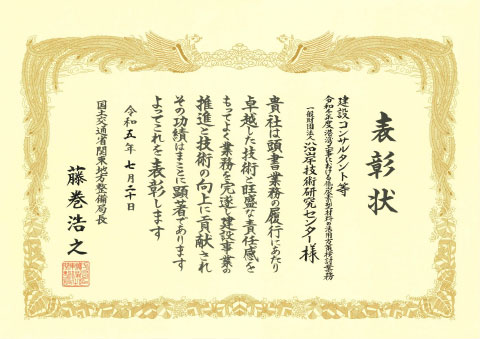 表彰状
建設コンサルタント等
令和4年度 港湾工事における低炭素型材料の活用方策検討業務
一般財団法人 沿岸技術研究センター 様
貴社は頭書業務の履行にあたり
卓越した技術と旺盛な責任感を
もってよく業務を完遂し建設事業の
推進と技術の向上に貢献され
その功績はまことに顕著であります
よってこれを表彰します
令和五年七月二十日
国土交通省関東地方整備局長
藤巻浩之